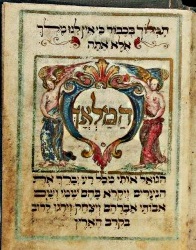 תמלוך בכבוד כי אין לנו מלך
אלא אתה
המלאך
הגואל אותי מכל רע יברך את
הנערים ויקרא בהם שמי ושם
אבותי אברהם ויצחק וידגו לרוב
בקרב הארץ